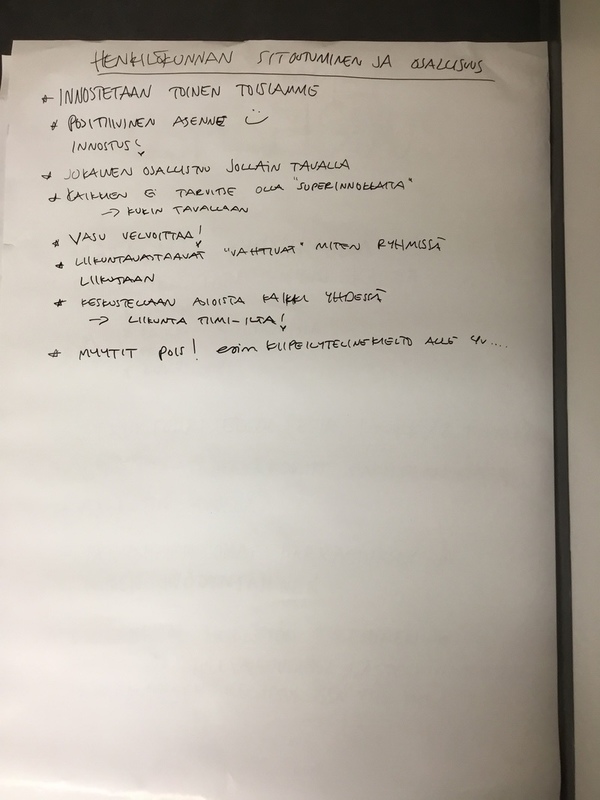 HENKILÖKUNNAN SITOUTUMINEN JA OSALLISUUS
* INNOSTETAAN TOINEN TOISIAMME
* POSITIIVINEN ASENNE :)
INNOSTUS!
* JOKAINEN OSALLISTUU JOLLAIN TAVALLA
* KAIKKIEN EI TARVITSE OLLA "SUPERINNOKKAITA"
→ KUKIN TAVALLAAN
* VASU VELVOITTAA!
* LIIKUNTAVASTAAVAT "VAHTIVAT" MITEN RYHMISSÄ
LIIKUTAAN
* KESKUSTELLAAN ASIOISTA KAIKKI YHDESSÄ
→ LIIKUNTA TIIMI-ILTA!
* MYYTIT POIS! esim KIIPEILYTELINEKIELTO ALLE 4V....